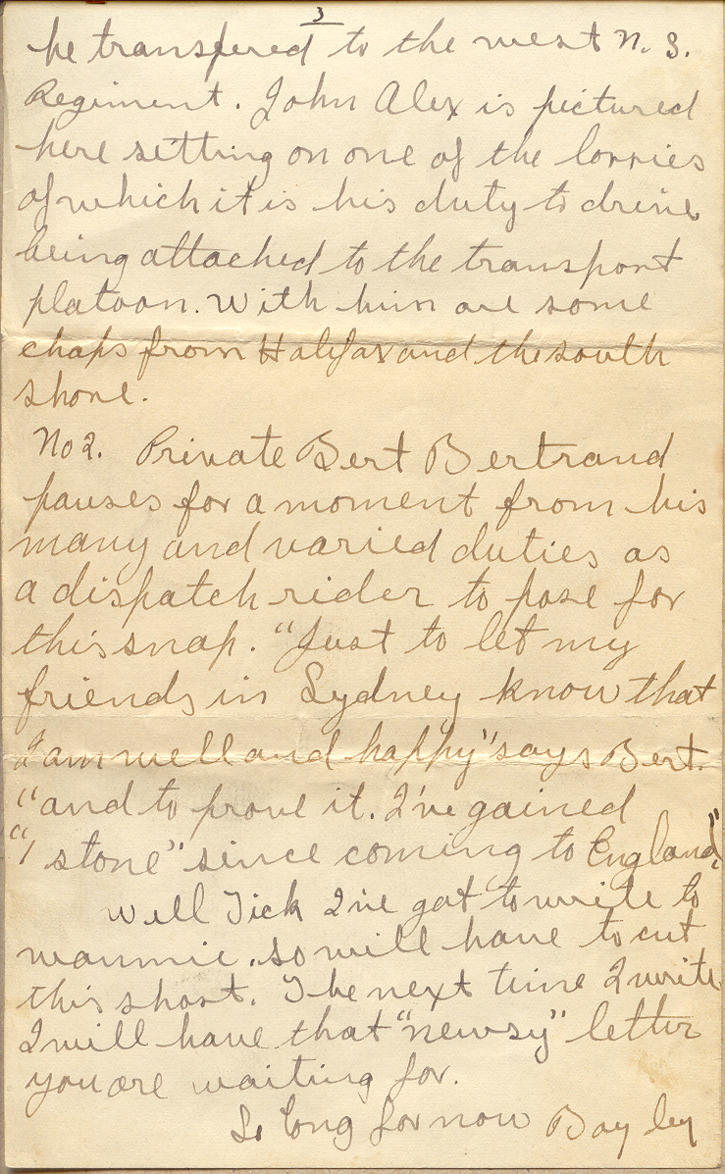 3
he transfered to the west N. S.
Regiment. John Alex is pictured
here setting on one of the lorries
of which it is his duty to drive
being attached to the transport
platoon. With him are some
chaps from Halifax and the south
shore.
No 2. Private Bert Bertrand
pauses for a moment from his
many and varied duties as
a dispatch rider to pose for
this snap. "Just to let my
friends in Sydney know that
I am well and happy" says Bert.
"and to prove it. I've gained
"1 stone" since coming to England."
Well Tick I've got to write to
mammie. so will have to cut
this short. The next time I write
I will have that "newsy" letter
you are waiting for.
So long for now Bayley